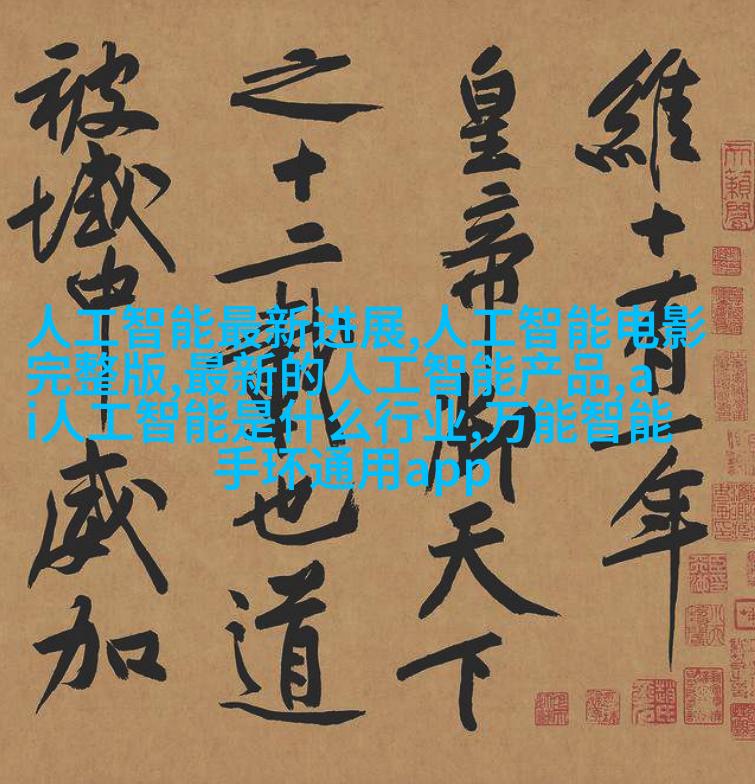 維十有一年
皇帝御天下
之十二載也道
被域中威加
人工智能最新进展,人工智能电影
完整版,最新的人工智能产品,a
i人工智能是什么行业,万能智能
手环通用app